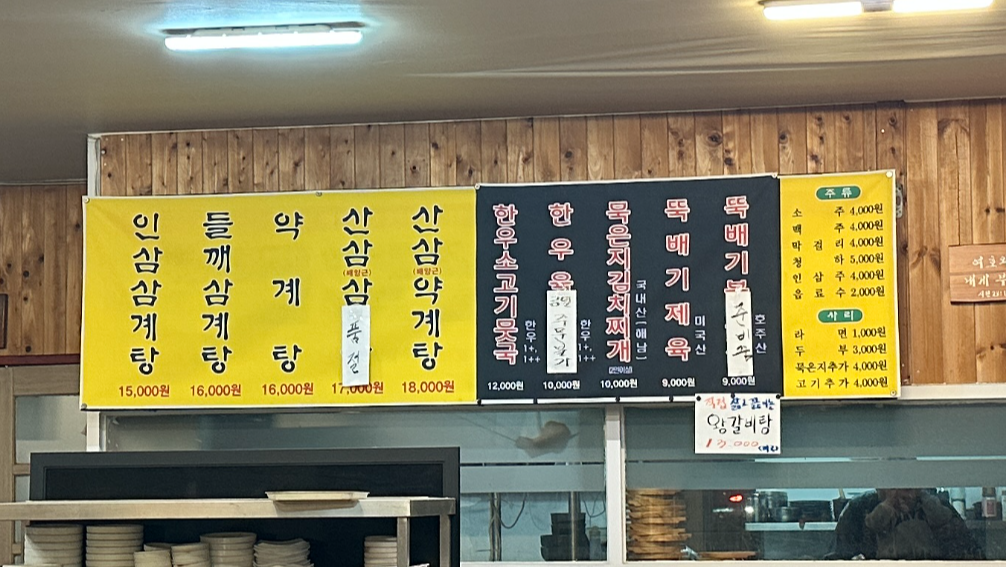 인삼삼계탕
15,000원
들깨삼계탕
16,000원
약계탕
16,000원
산삼
(배양근)
삼
품절
17,000원
산삼
(배양근)
약계탕
18,000원
한우소고기뭇국
한우 1+, 1++
12,000원
한우육
한우 1+, 1++
10,000원
묵은지김치찌개
국내산(해남)
(2인이상)
10,000원
뚝배기제육
미국산
9,000원
뚝배기
준비중
호주산
9,000원
주류
소주 4,000원
맥주 4,000원
막걸리 4,000원
청하 5,000원
인삼주 4,000원
음료수 2,000원
사리
라면 1,000원
두부 3,000원
묵은지추가 4,000원
고기추가 4,000원
직접
왕갈비탕
13,000